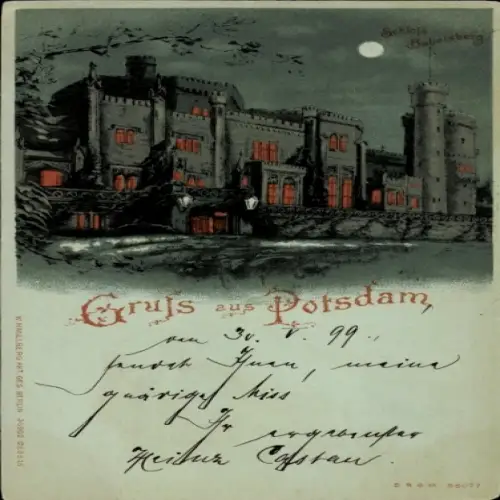 Schloß
Babelsberg
Gruss aus Potsdam,
vom 30. V. 99.
sendet Ihnen, meine
gnädige Miss
Ihr ergebenster
Heinz